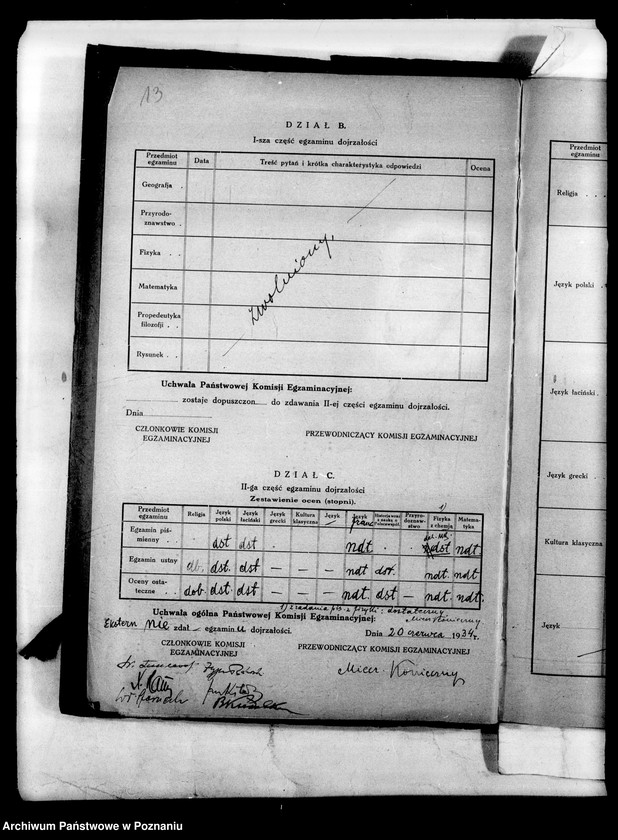 13
DZIAŁ B.
I-sza część egzaminu dojrzałości
Przedmiot egzaminu | Data | Treść pytań i krótka charakterystyka odpowiedzi | Ocena
Geografja .
Przyrodo-
znawstwo .
Fizyka . .
zwolniony.
Matematyka
Propedeutyka
filozofji . .
Rysunek . .
Uchwała Państwowej Komisji Egzaminacyjnej:
zostaje dopuszczon do zdawania II-ej części egzaminu dojrzałości.
Dnia
CZŁONKOWIE KOMISJI
EGZAMINACYJNEJ
PRZEWODNICZĄCY KOMISJI EGZAMINACYJNEJ
DZIAŁ C.
II-ga część egzaminu dojrzałości
Zestawienie ocen (stopni).
1)
Przedmiot egzaminu | Religja | Język polski | Język łaciński | Język grecki | Kultura klasyczna | Język — | Język franc. | Historja wraz z nauką o | Przyro-doznaw-stwo | Fizyka z chemją | Matema-tyka
Egzamin piś-
mienny . . dst dst . . . ndt . . dst ndt.
Egzamin ustny db. dst. dst — — — ndt dst. . ndt. ndt.
Oceny osta-
teczne . . dob. dst. dst — — — ndt. dst — ndt. ndt.
1) z zadania piś. z fizyki: dostateczny
Uchwała ogólna Państwowej Komisji Egzaminacyjnej:
Ekstern nie zdał egzaminu dojrzałości.
Dnia 20 czerwca 1934 r.
CZŁONKOWIE KOMISJI
EGZAMINACYJNEJ
PRZEWODNICZĄCY KOMISJI EGZAMINACYJNEJ
Przedmiot
egzaminu
Religja . . .
Język polski .
Język łaciński .
Język grecki .
Kultura klasyczna
Język
Archiwum Państwowe w Poznaniu